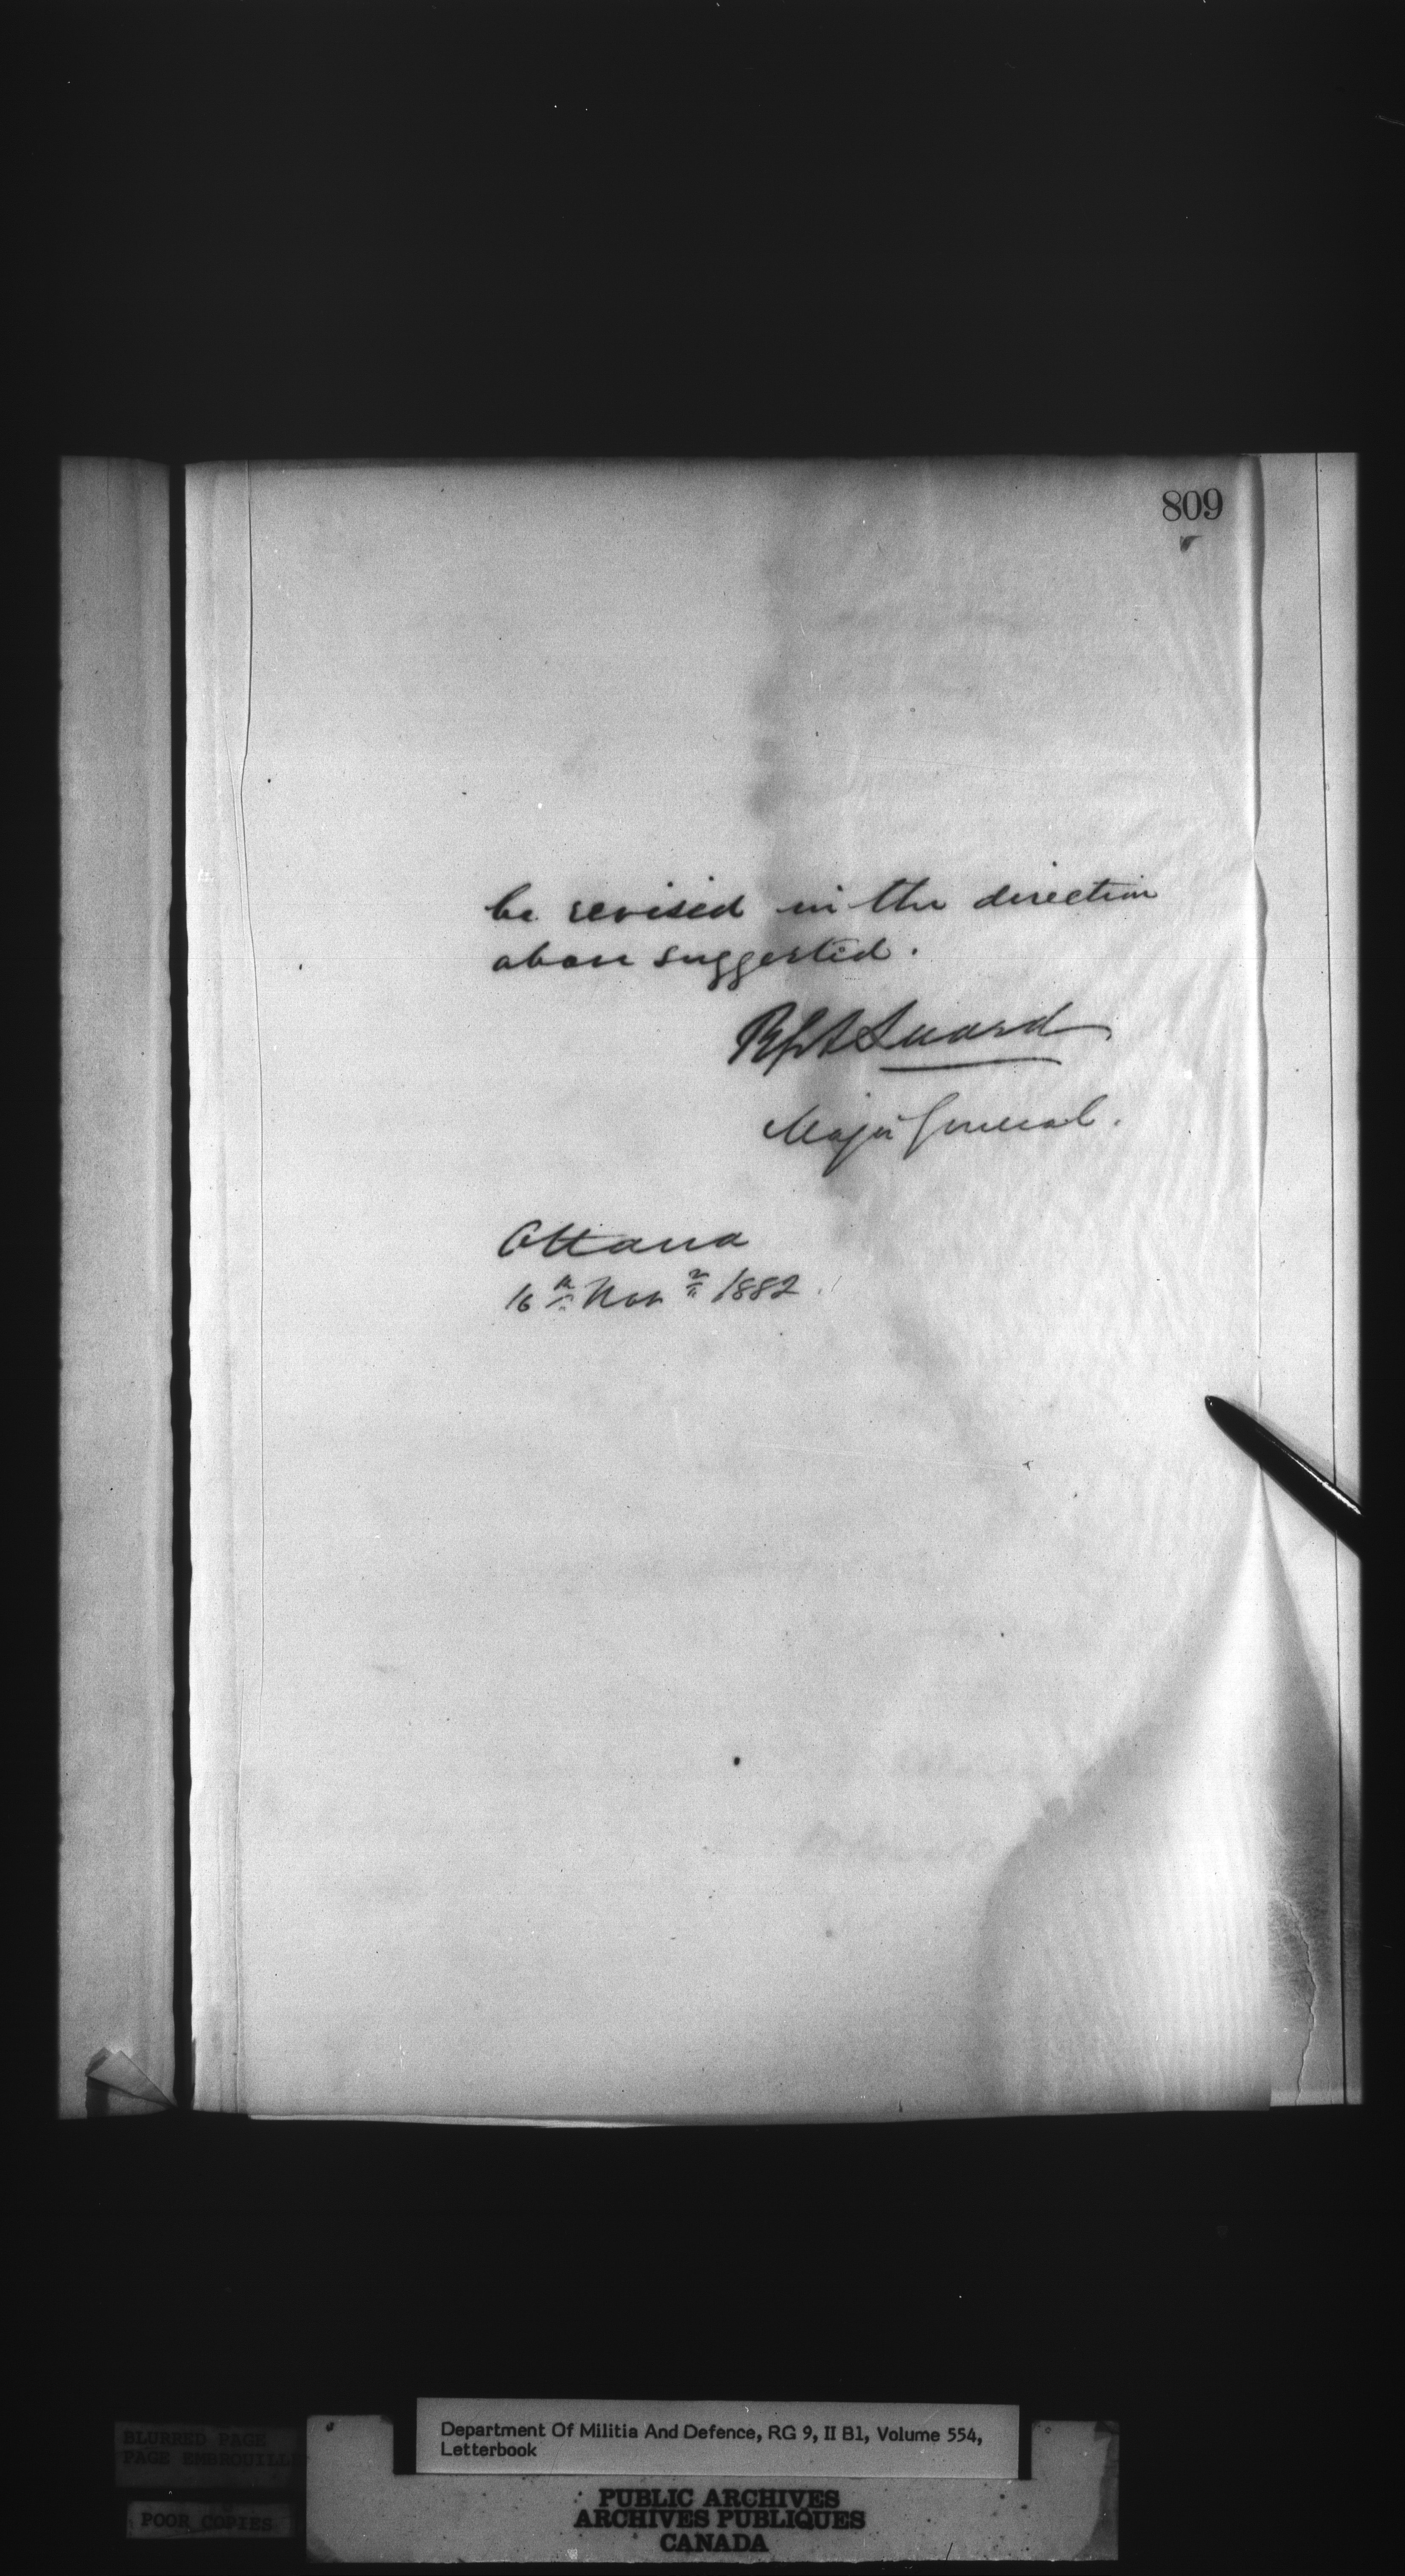 809
be revised in the direction
above suggested.
RGA Luard
Major General.
Ottawa
16th Novr 1882.
Department Of Militia And Defence, RG 9, II B1, Volume 554,
Letterbook
BLURRED PAGE
PAGE EMBROUILL
POOR COPIES
PUBLIC ARCHIVES
ARCHIVES PUBLIQUES
CANADA